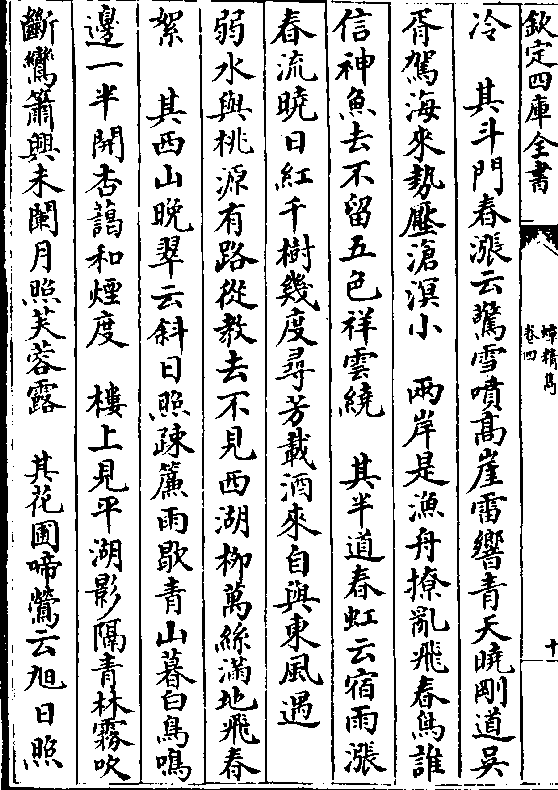 欽定四庫全書
蟫精雋
卷四
十
冷　其斗門春漲云驚雪噴髙崖雷響青天曉剛道吳
胥駕海來勢壓滄溟小　兩岸是漁舟撩亂飛春鳥誰
信神魚去不留五色祥雲繞　其半道春虹云宿雨漲
春流曉日紅千樹幾度尋芳載酒來自與東風遇
弱水與桃源有路從教去不見西湖栁萬絲滿地飛春
絮　其西山晩翠云斜日照疎簾雨歇青山暮白鳥鳴
邊一半開杏藹和煙度　樓上見平湖影隔青林霧吹
斷鸞簫興未闌月照芙蓉露　其花圃啼鶯云旭日照